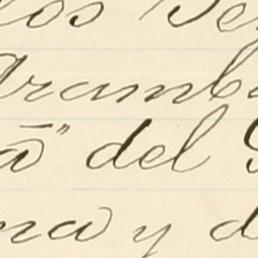 los Se
Aramb
a" del S
na y d